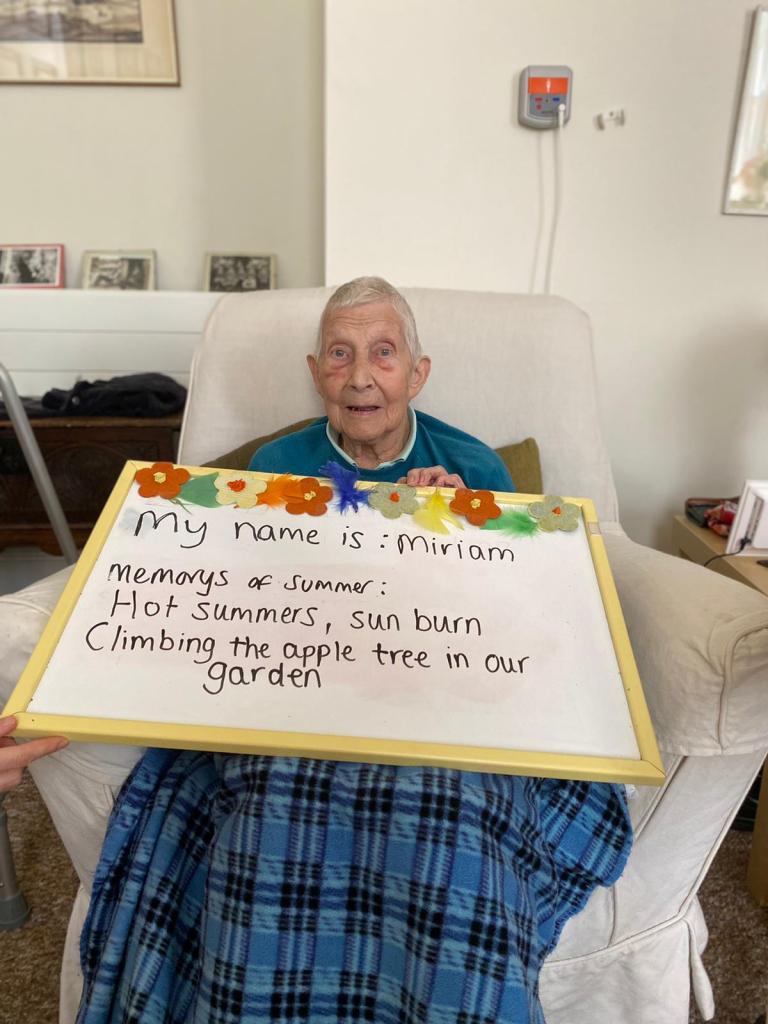 My name is : Miriam
Memorys of summer:
Hot summers, sun burn
Climbing the apple tree in our
garden